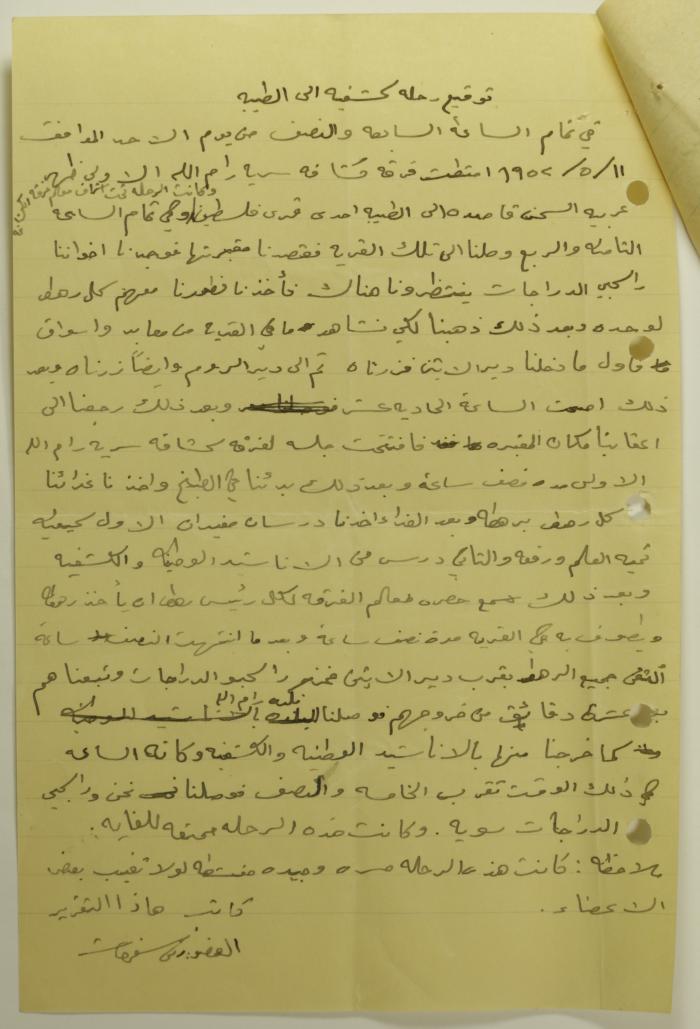 توقيع رحله كشفيه الى الطيبه
في تمام الساعة السابعه والنصف من يوم الاحد الموافق
١١/٥/١٩٥٢ امتطت فرقه كشافه سريه رام الله الاولى ظهر
وكانت الرحله تحت
عربيه الشحن قاصده الى الطيبه احدى قرى فلسطين وفي تمام الساعة
الثامنه والربع وصلنا الى تلك القريه فقصدنا مقبرتها فوجدنا اخواننا
راكبي الدراجات ينتظروننا هناك فأخذنا فطورنا معهم كل رهط
لوحده وبعد ذلك ذهبنا لكي نشاهد ما في القريه من معابد واسواق
فاول ما دخلنا دير الاتين فزرناه ثم الى دير الروم وايضاً زرناه وبعد
ذلك اصبحت الساعة الحاديه عشر وبعد ذلك رجعنا الى
اعقابنا مكان المقبره فافتتحت جلسه لفرقه كشافه سريه رام الله
الاولى مده نصف ساعة وبعد ذلك بدئنا في الطبخ واخذنا غدائنا
كل رهط برهطه وبعد الغداء اخذنا درسان مفيدان الاول كيفيه
تحيه العلم ورفعه والثاني درس من الاناشيد الوطنيه والكشفيه
وبعد ذلك سمح حضره معلم الفرقه لكل رئيس رهط ان يأخذ رهطه
ويطوف به في القريه مدة نصف ساعة وبعد ما انتهت النصف ساعة
التقى جميع الرهط بقرب دير الاتين فخرج راكبو الدراجات وتبعناهم
بعد عشرة دقائق من خروجهم فوصلنا بلدنا رام الله
كما خرجنا منها بالاناشيد الوطنيه والكشفيه وكانه الساعه
في ذلك الوقت تقرب الخامسه والنصف فوصلنا نحن وراكبي
الدراجات سويه . وكانت هذه الرحله ممتعه للغايه .
ملاحظه : كانت هذه الرحله مسره وجيده منشطه لولا تغيب بعض
الاعضاء .
كاتب هاذا التقرير
العضو: